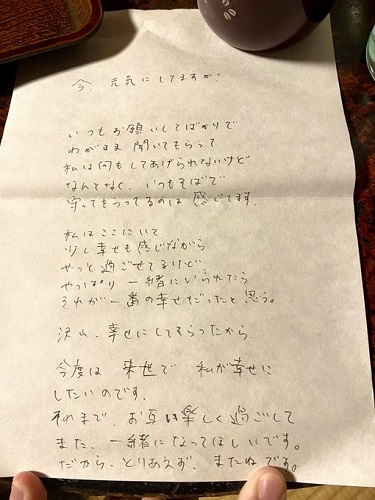 今、元気にしてますか?
いつもお願いしてばかりで
わがまま 聞いてもらって
私は何もしてあげられないけど
なんとなく、いつもそばで
守ってもらってるのは 感じてます.
私はここにいて
少し幸せも感じながら
やっと過ごせてるけど
やっぱり 一緒にいられたら
それが一番の幸せだったと思う。
沢山、幸せにしてもらったから.
今度は 来世で 私が幸せに
したいのです.
それまで、お互い楽しく過ごして
また、一緒になってほしいです。
だから、とりあえず、またねです。